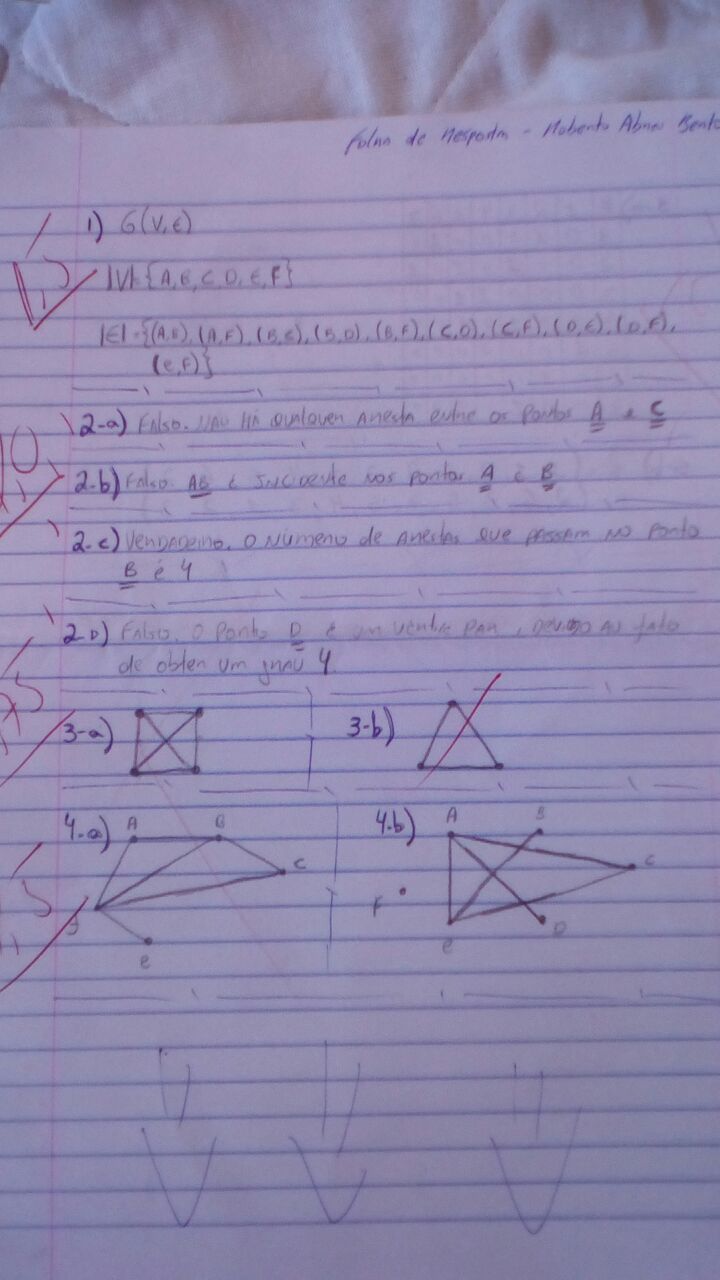 Folha de Resposta - Roberto Abreu Bento
1) G(V,E)
|V|={A,B,C,D,E,F}
|E|={(A,B),(A,F),(B,C),(B,D),(B,F),(C,D),(C,F),(D,E),(D,F),
(E,F)}
2-a) Falso. Não há qualquer aresta entre os pontos A e C
2-b) Falso. AB é incidente nos pontos A e B
2-c) Verdadeiro. O número de arestas que passam no ponto
B é 4
2-D) Falso. O ponto D é um vértice par, devido ao fato
de obter um grau 4
3-a) 3-b)
4-a) A B C e
4-b) A B C D e F